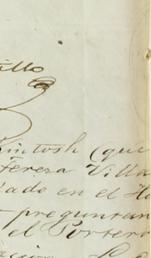 illo
intosh (que
Teresa Villa
ade en el Ho
preguntan
el Portero